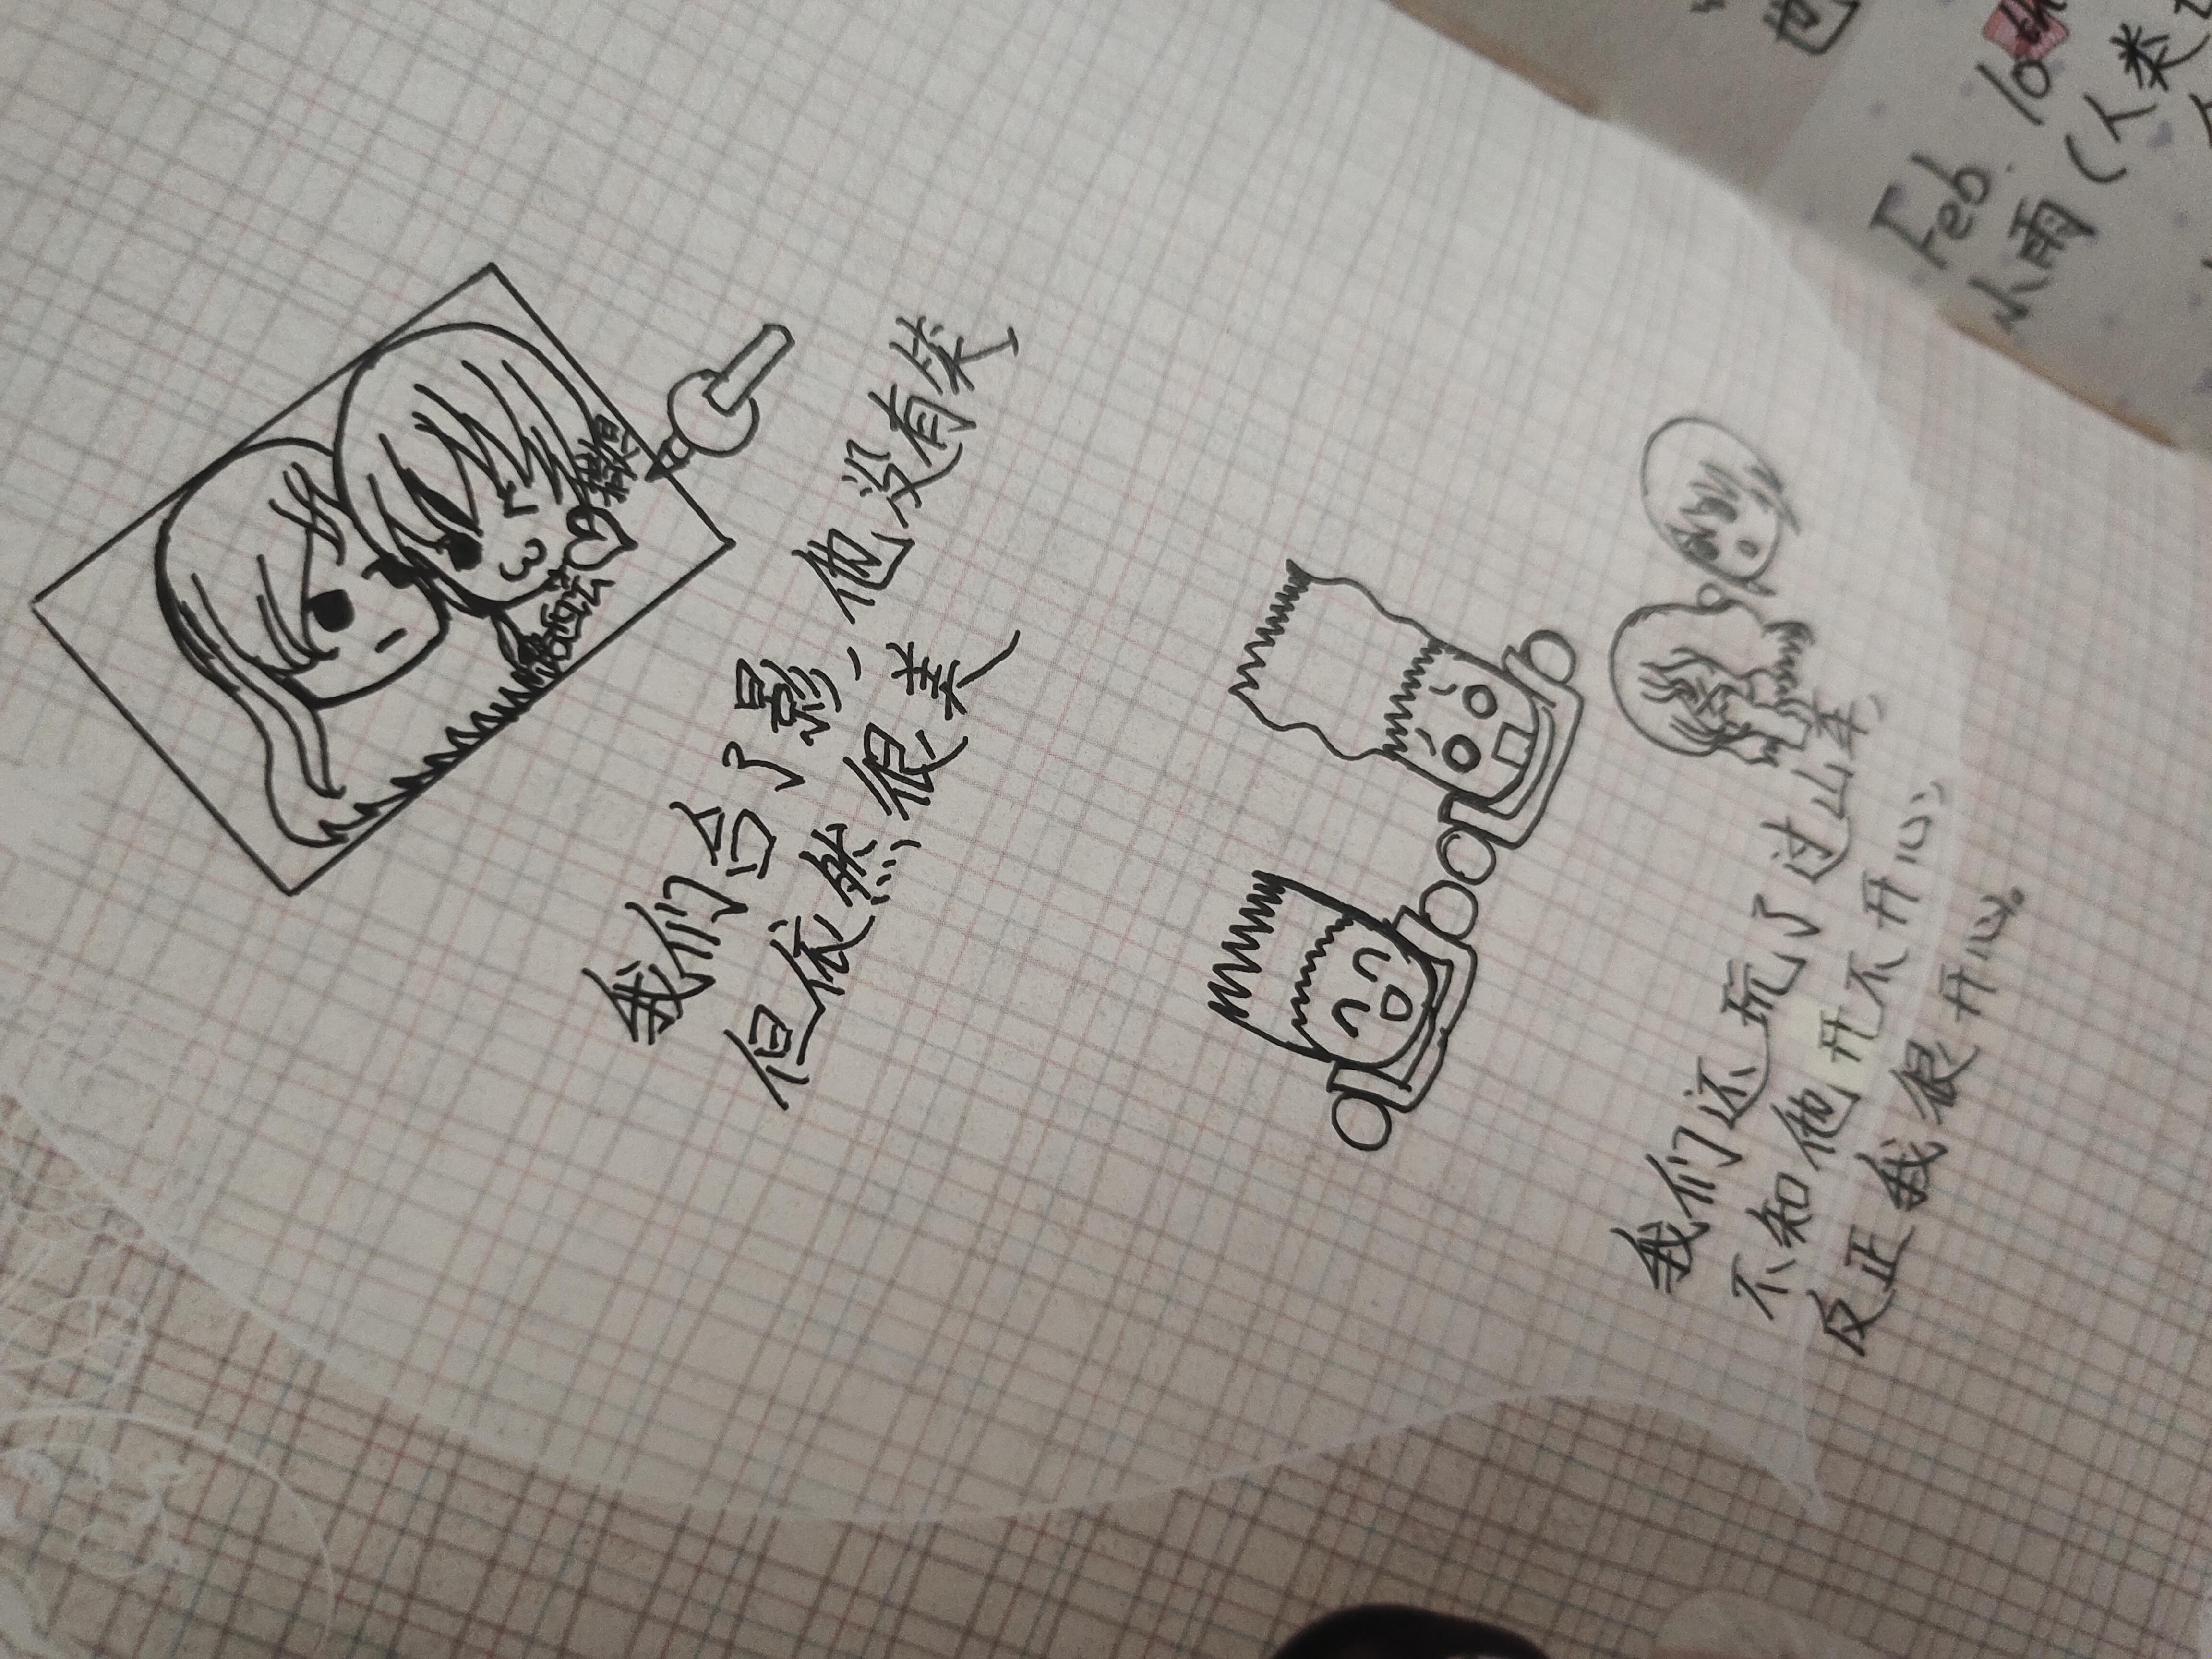 我们合了影，他没有笑
但依然很美
我们还玩了过山车，
不知他开不开心，
反正我很开心。
也
Feb. 10th
小雨（人类